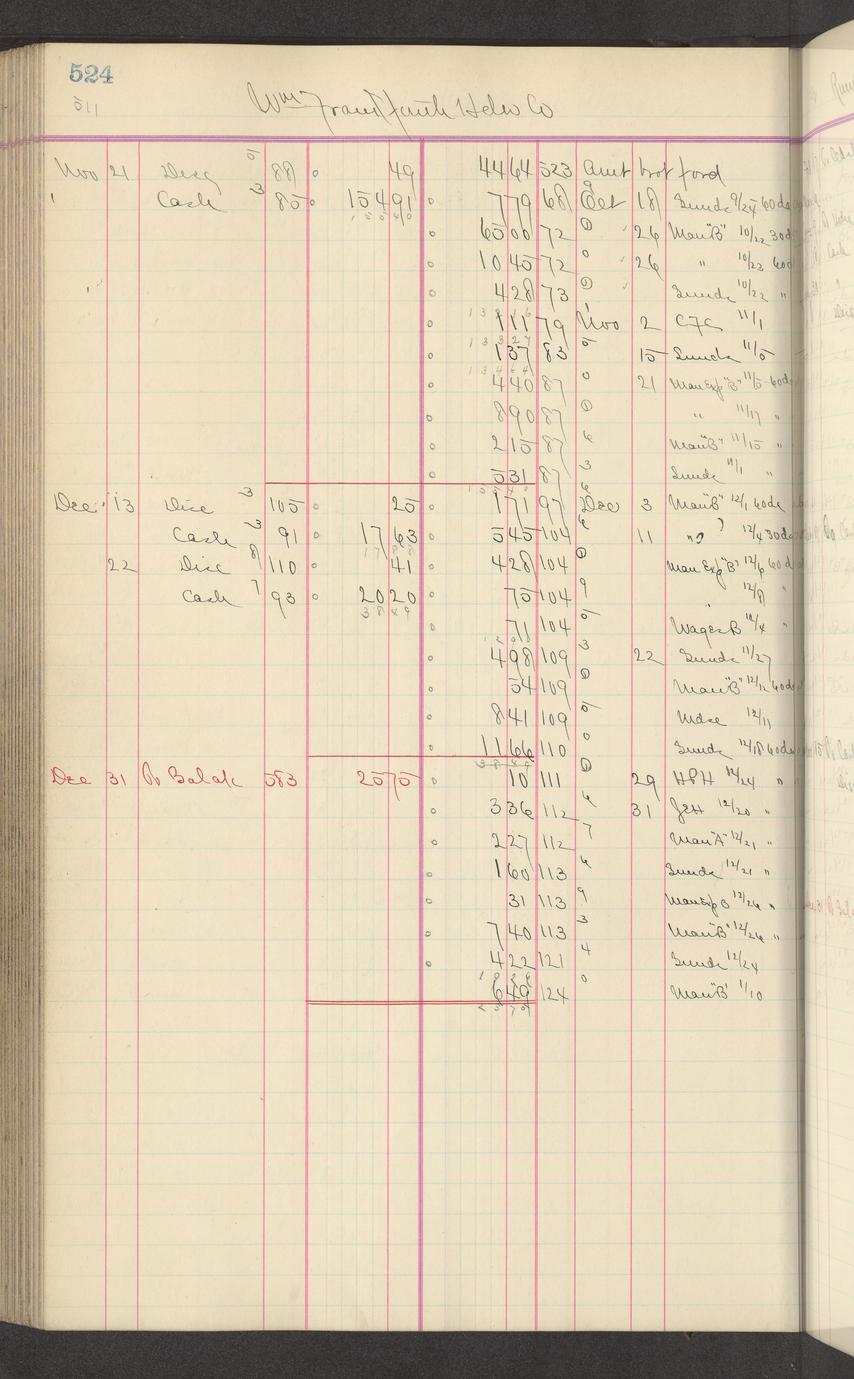 524
511
Wm Frankfurth Hdw Co
Nov 21 Disc 5 88 49 44 64 523 Amt brot ford
" Cash 3 85 154 91 7 79 68 9 Oct 18 Sunds 9/25 60da
65 00 72 0 " 26 Man "B" 10/22 30d
10 45 72 0 " 26 " 10/23 60d
4 28 73 0 " Sunds 10/22 "
1 11 79 1 Nov 2 11/1
1 37 83 5 15 Sunds 11/5
4 40 87 0 21 Man Exp "B" 11/5 60d
8 90 87 0 " 11/17 "
2 15 87 6 Man "B" 11/15 "
5 31 87 3 Sunds 11/1 "
Dec 13 Disc 3 105 25 1 71 97 6 Dec 3 Man "B" 12/1 60da
Cash 3 91 17 63 5 45 104 6 11 " 12/4 30da
22 Disc 8 110 41 4 28 104 0 Man Exp "B" 12/6 60d
Cash 7 93 20 20 75 104 9 " 12/8 "
38 49 71 104 5 Wages B 12/4 "
4 98 109 3 22 Sunds 11/27
54 109 0 Man "B" 12/12 60da
8 41 109 5 Mdse 12/11
11 66 110 0 Sunds 12/18 60da
38 49
Dec 31 To Balance 583 25 75 10 111 0 29 HPH 12/24 "
3 36 112 6 31 JEH 12/20 "
2 27 112 7 Man "A" 12/21 "
1 60 113 6 Sunds 12/21 "
31 113 9 Man Exp B 12/26 "
7 40 113 3 Man "B" 12/26 "
4 22 121 4 Sunds 12/24
6 49 124 0 Man "B" 1/10